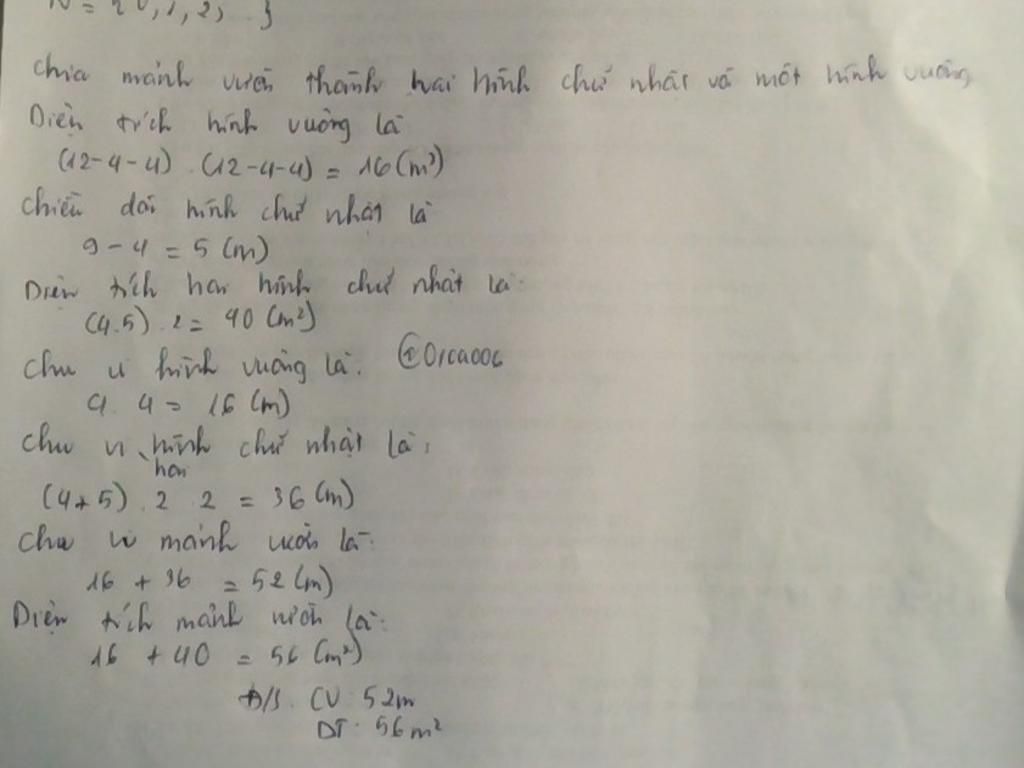 N = {0, 1, 2, .. }
chia mảnh vườn thành hai hình chữ nhật và một hình vuông
Diện tích hình vuông là
(12-4-4) . (12-4-4) = 16 (m²)
chiều dài hình chữ nhật là
9 - 4 = 5 (m)
Diện tích hai hình chữ nhật là:
(4.5) . 2 = 40 (m²)
chu vi hình vuông là: @Orca006
4. 4 = 16 (m)
chu vi hình chữ nhật là:
hai
(4+5) . 2 2 = 36 (m)
chu vi mảnh vườn là:
16 + 36 = 52 (m)
Diện tích mảnh vườn là:
16 + 40 = 56 (m²)
Đ/S. CV: 52m
DT: 56m²